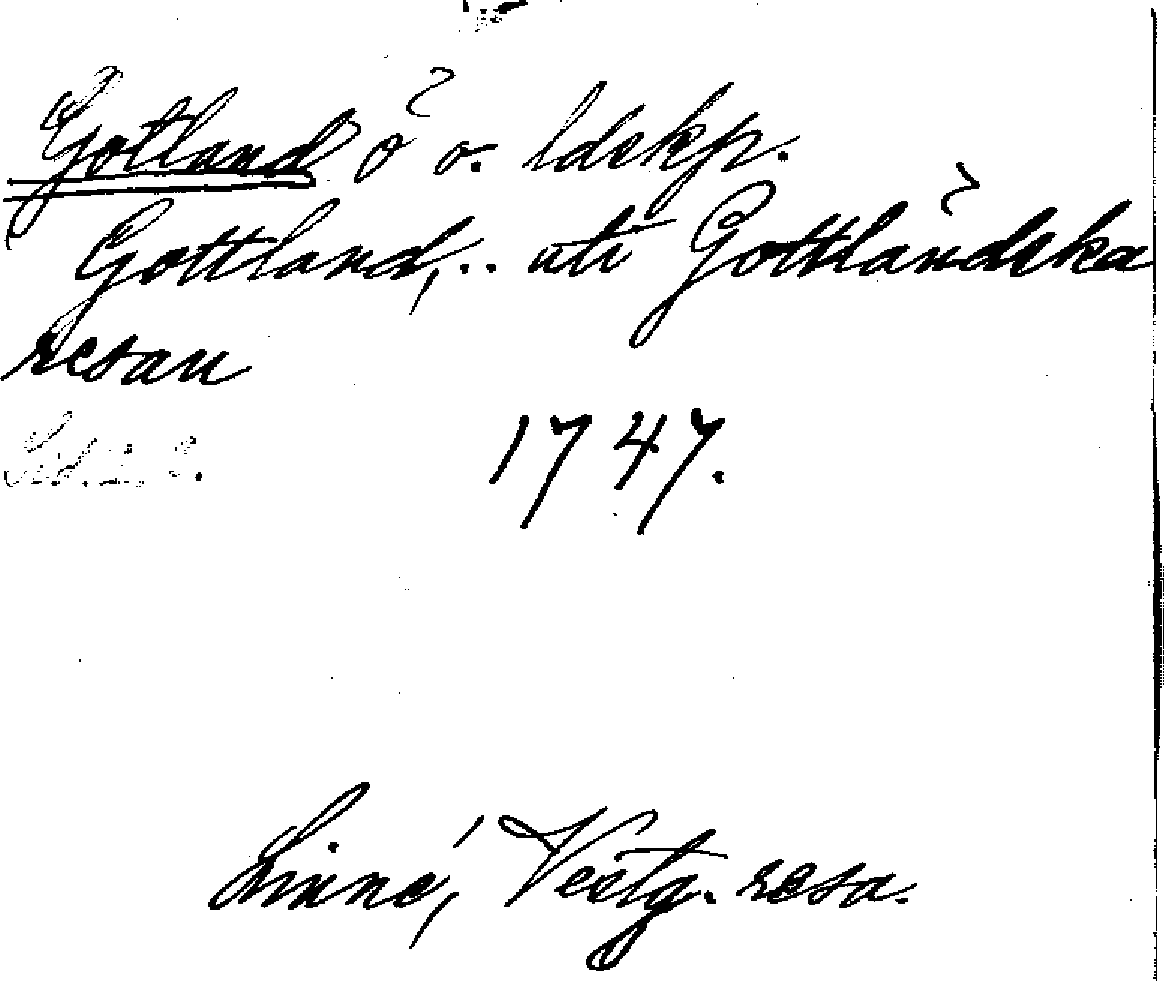 Gotland ö o. ldskp.
Gottland,.. uti Gottländska
resan
1747.
Linné, Vestg. resa.